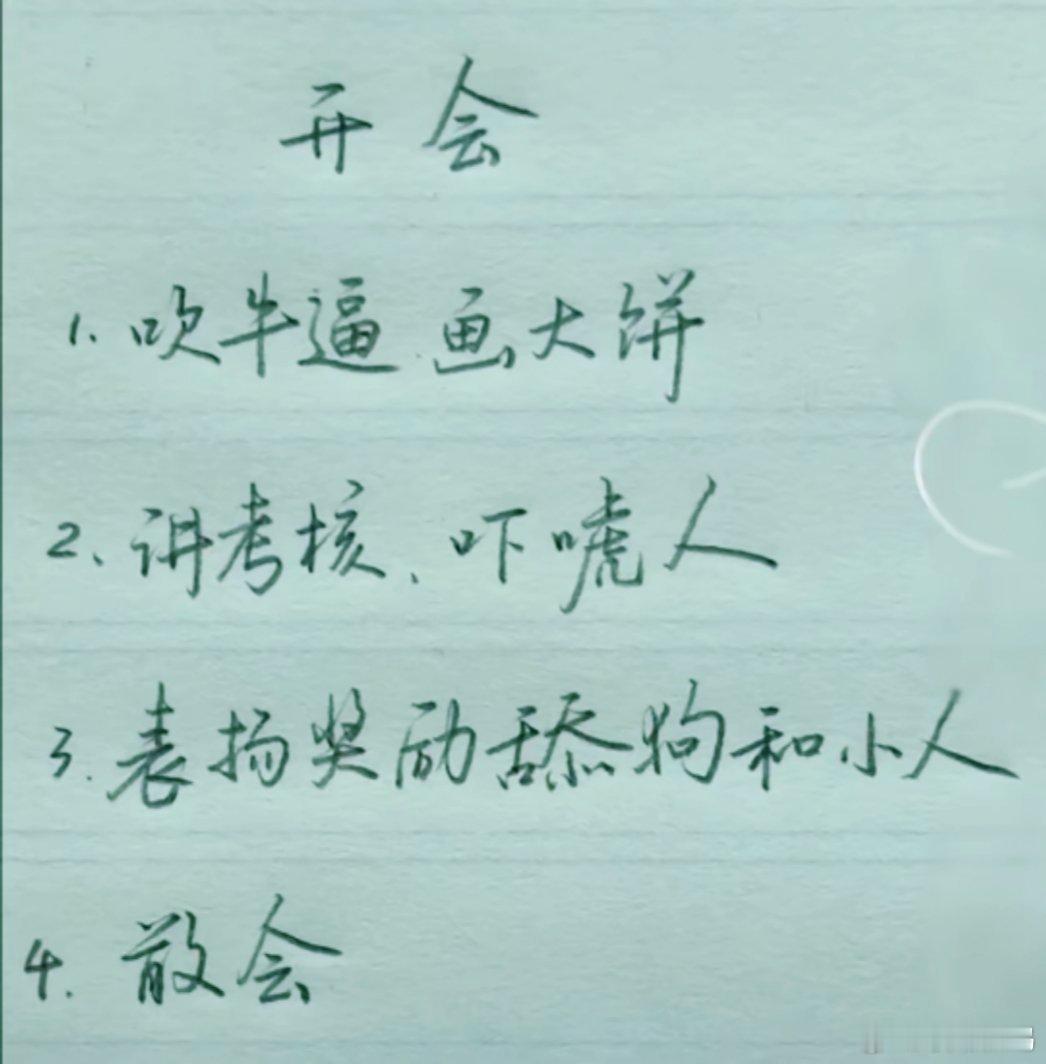 开会
1.吹牛逼.画大饼
2、讲考核、吓唬人
3.表扬奖励舔狗和小人
4.散会